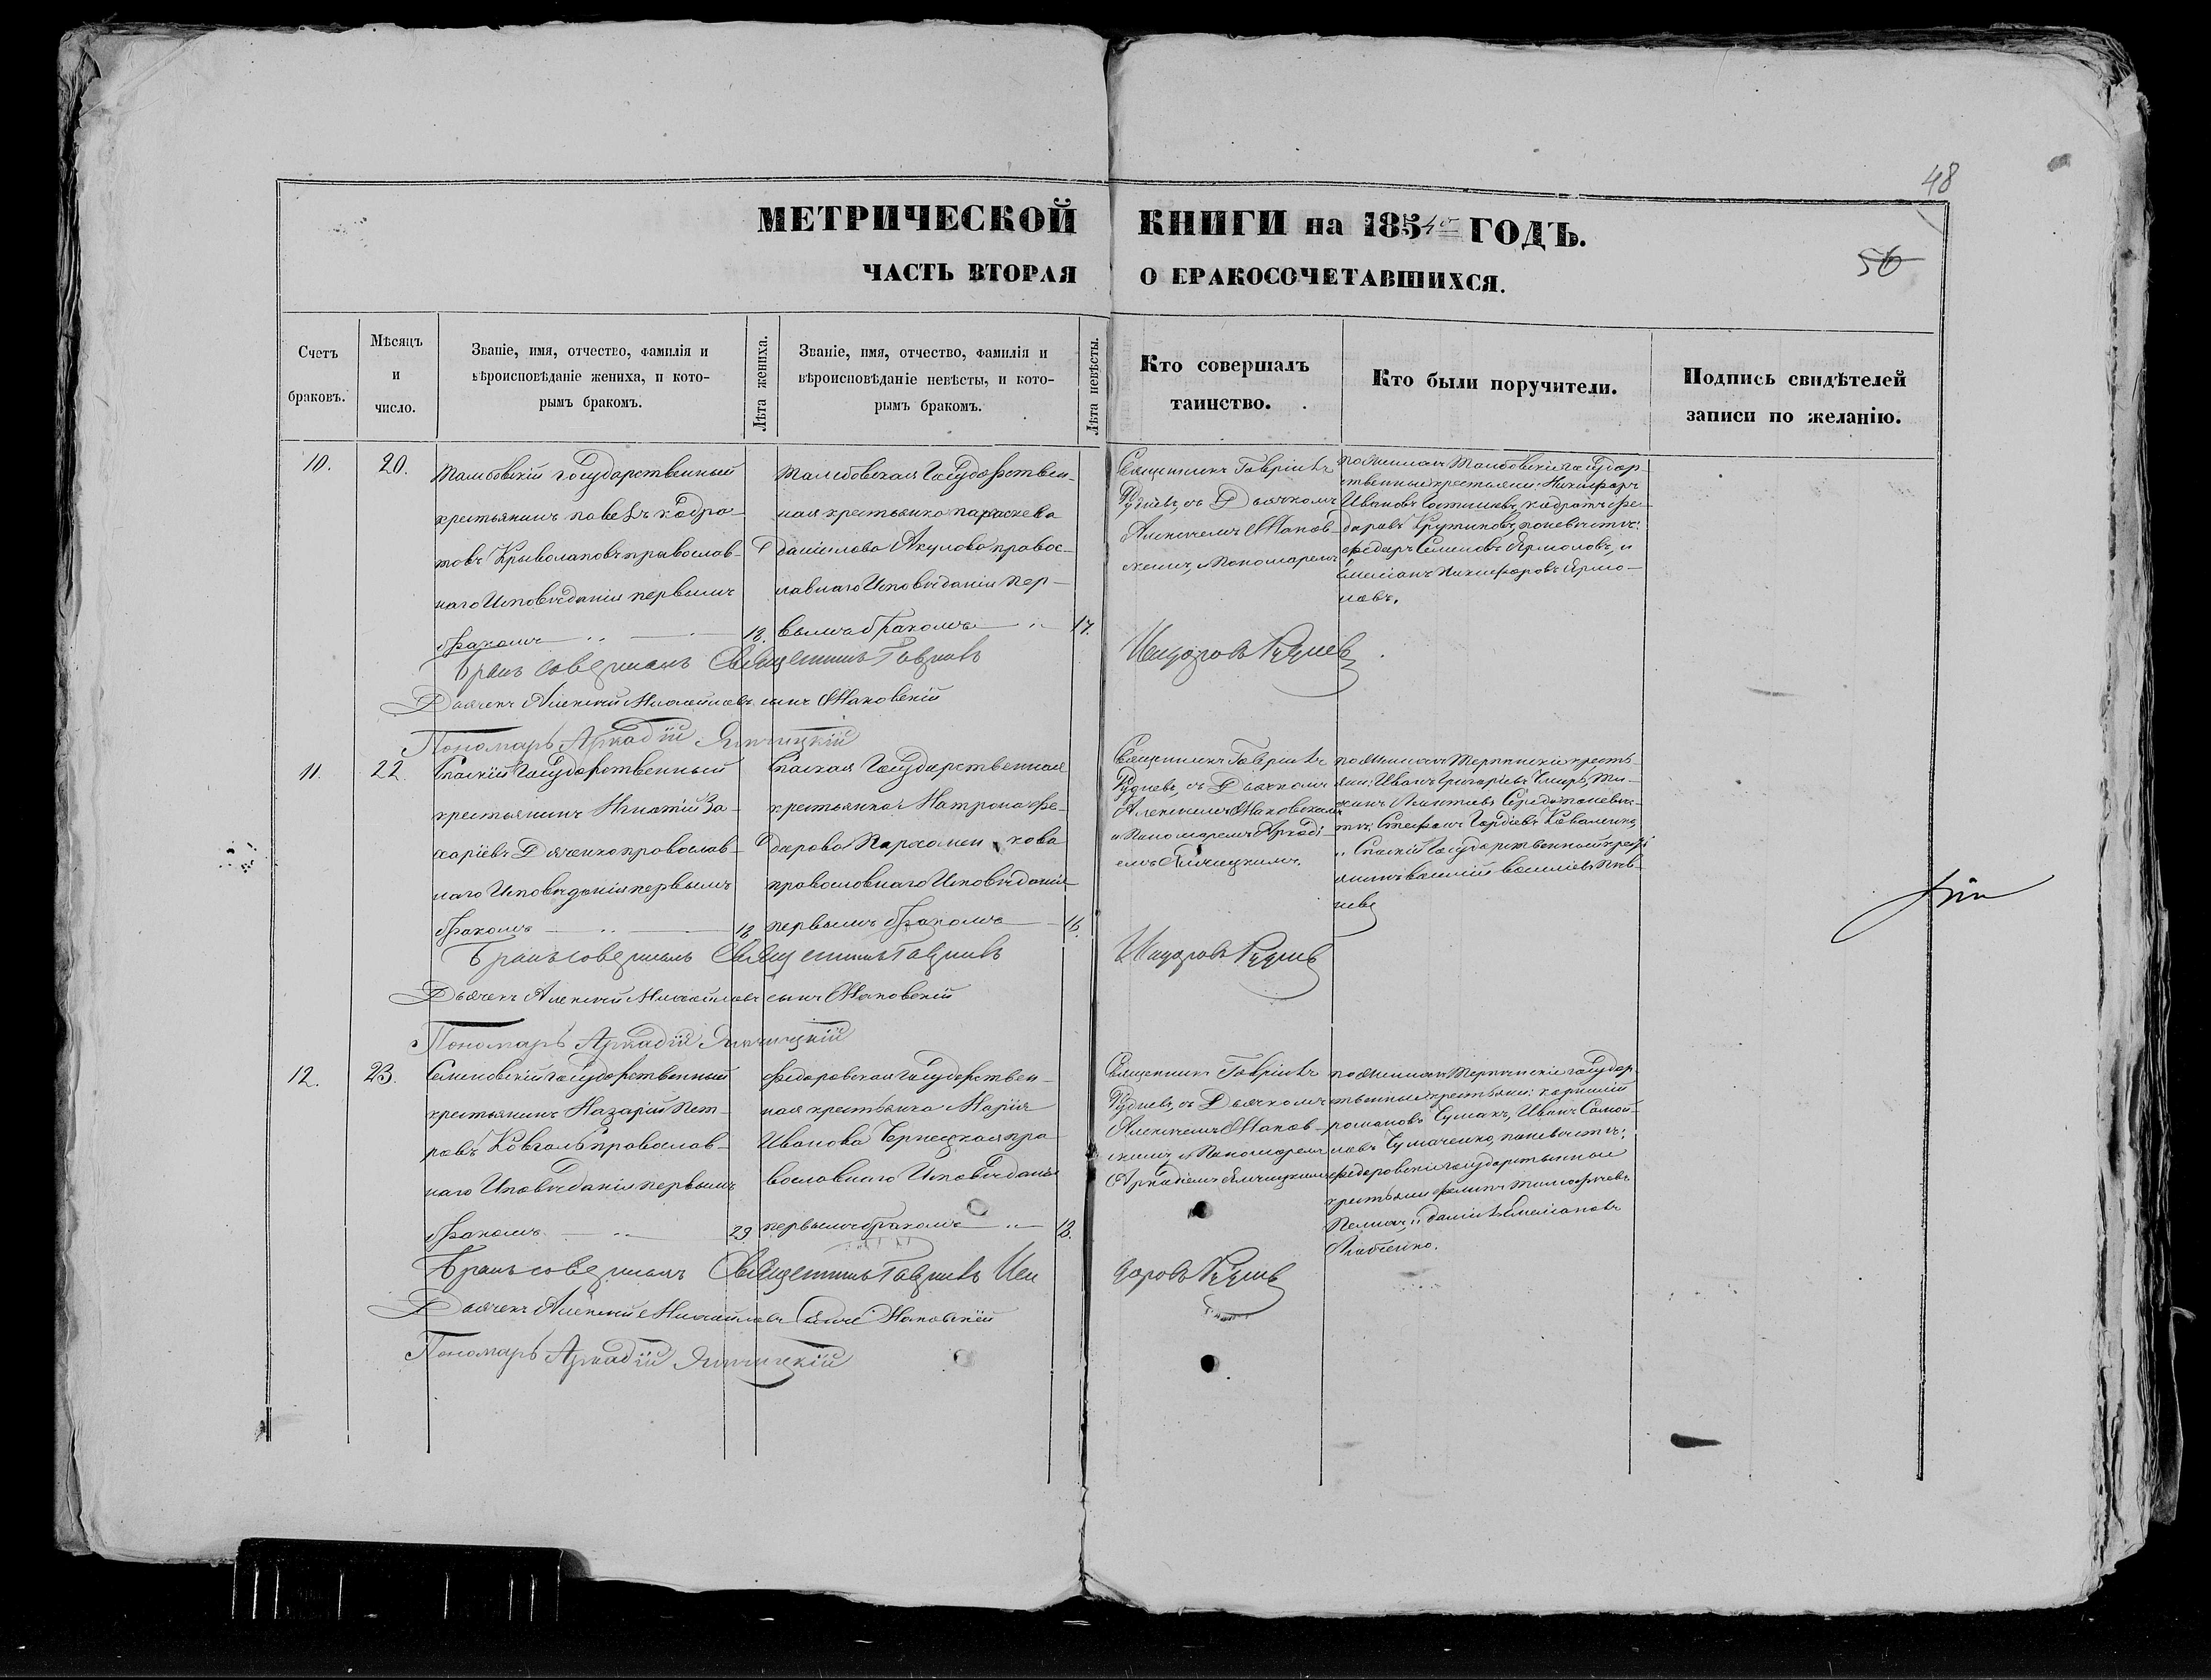 48
МЕТРИЧЕСКОЙ КНИГИ на 1854го ГОДЪ.
56
ЧАСТЬ ВТОРАЯ О БРАКОСОЧЕТАВШИХСЯ.
Счетъ браковъ.
Мѣсяцъ и число.
Званіе, имя, отчество, фамилія и
вѣроисповѣданіе жениха, и кото-
рымъ бракомъ.
Лѣта жениха.
Званіе, имя, отчество, фамилія и
вѣроисповѣданіе невѣсты, и кото-
рымъ бракомъ.
Лѣта невѣсты.
Кто совершалъ
таинство.
Кто были поручители.
Подпись свидѣтелей
записи по желанію.
10.
20.
Тамбовскій Государственный
крестьянинъ Павелъ Кодра-
товъ Криволаповъ православ-
наго Исповѣданія первымъ
бракомъ
18.
Тамбовская Государствен-
ная крестьянка Параскева
Даніилова Акулова правос-
лавнаго Исповѣданія пер-
вымъ бракомъ
17.
Священникъ Гавріилъ
Рудневъ, съ Дьячкомъ
Алексѣемъ Маков-
скимъ, и Пономаремъ
по женихѣ Тамбовскіе Государ-
ственные крестьяне: Никифоръ
Ивановъ, Кодратъ Фе-
доровъ Крутиковъ, по невѣстѣ:
Федоръ Семеновъ Ярмоловъ, и
Емеліанъ Никифоровъ Ярмо-
ловъ.
Бракъ совершалъ Священникъ Гавріилъ Исидоровъ Рудневъ
Дьячекъ Алексѣй Михайловъ сынъ Маковскій
Пономарь Аркадій
11.
22
Спаскій Государственный
крестьянинъ Игнатій За-
харіевъ Дяченко православ-
наго Исповѣданія первымъ
бракомъ
18
Спаская Государственная
крестьянка Матрона Фе-
дорова Пархоменкова
православнаго Исповѣданія
первымъ бракомъ
16.
Священникъ Гавріилъ
Рудневъ, съ Дьячкомъ
Алексѣемъ Маковскимъ
и Пономаремъ Аркаді-
емъ
по женихѣ Терпинскіе кресть-
яне: Иванъ Григоріевъ
Середа по невѣс-
тѣ: Стефанъ Гордіевъ Коваленко,
и Спаскій Государственный кресть-
янинъ Василій Василіевъ
Бракъ совершалъ Священникъ Гавріилъ Исидоровъ Рудневъ
Дьячекъ Алексѣй Михайловъ сынъ Маковскій
Пономарь Аркадій
12.
23.
Семеновскій Государственный
крестьянинъ Назарій Пет-
ровъ Ковгаль православ-
наго Исповѣданія первымъ
бракомъ
23
Федоровская Государствен-
ная крестьянка Марія
Иванова Чернецкая пра-
вославнаго Исповѣданія
первымъ бракомъ
18.
Священникъ Гавріилъ
Рудневъ, съ Дьячкомъ
Алексѣемъ Маков-
скимъ, и Пономаремъ
Аркадіемъ
по женихѣ Терпинскіе Государ-
ственные крестьяне: Корнилій
Романовъ Чумакъ, Иванъ Самой-
ловъ Чумаченко, по невѣстѣ:
Федоровскіе Государственные
крестьяне Филипъ Тимофѣевъ
и Даніилъ Емеліановъ
Бракъ совершалъ Священникъ Гавріилъ Исидоровъ Рудневъ
Дьячекъ Алексѣй Михайловъ Сынъ Маковскій
Пономарь Аркадій